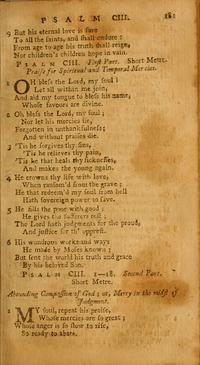 PSALM CIII. 181
9 But his eternal love is sure
To all the saints, and shall endure:
From age to age his truth shall reign,
Nor children's children hope in vain.
PSALM CIII. First Part. Short Metre.
Praise for Spiritual and Temporal Mercies.
1 OH bless the Lord, my soul!
Let all within me join,
And aid my tongue to bless his name,
Whose favours are divine.
2 Oh bless the Lord, my soul;
Nor let his mercies lie,
Forgotten in unthankfulness;
And without praises die.
3 'Tis he forgives thy sins,
'Tis he relieves thy pain,
'Tis he that heals thy sicknesses,
And makes thee young again.
4 He crowns thy life with love,
When ransom'd from the grave;
He that redeem'd my soul from hell
Hath sovereign power to save.
5 He fills the poor with good;
He gives the sufferers rest;
The Lord hath judgments for the proud,
And justice for th' opprest.
6 His wondrous works and ways
He made by Moses known;
But sent the world his truth and grace
By his beloved Son.
PSALM CIII. 1—18. Second Part.
Short Metre.
Abounding Compassion of God; or, Mercy in the midst of
Judgment.
1 MY soul, repeat his praise,
Whose mercies are so great;
Whose anger is so slow to rise,
So ready to abate.